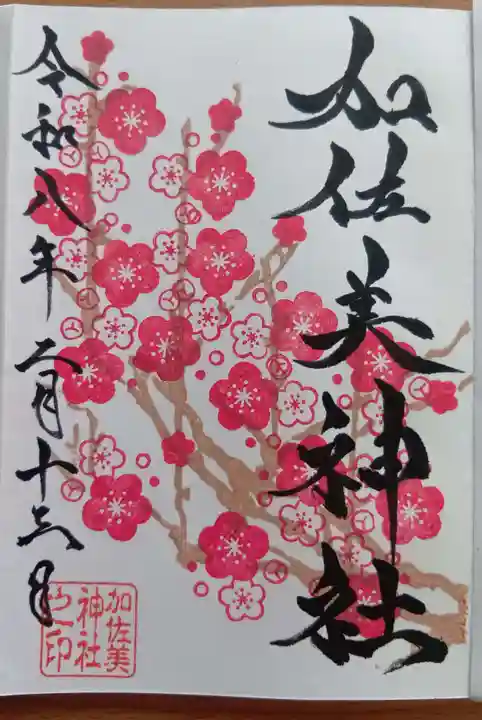 加佐美神社
令和八年二月十六日
加佐美
神社
之印